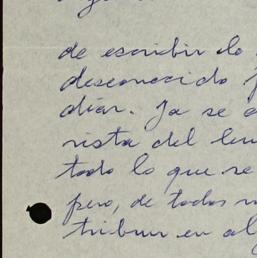 de escribir lo
desconocido
días. Ya se
rista del len
todo lo que se
pero, de todos
tribuir en al